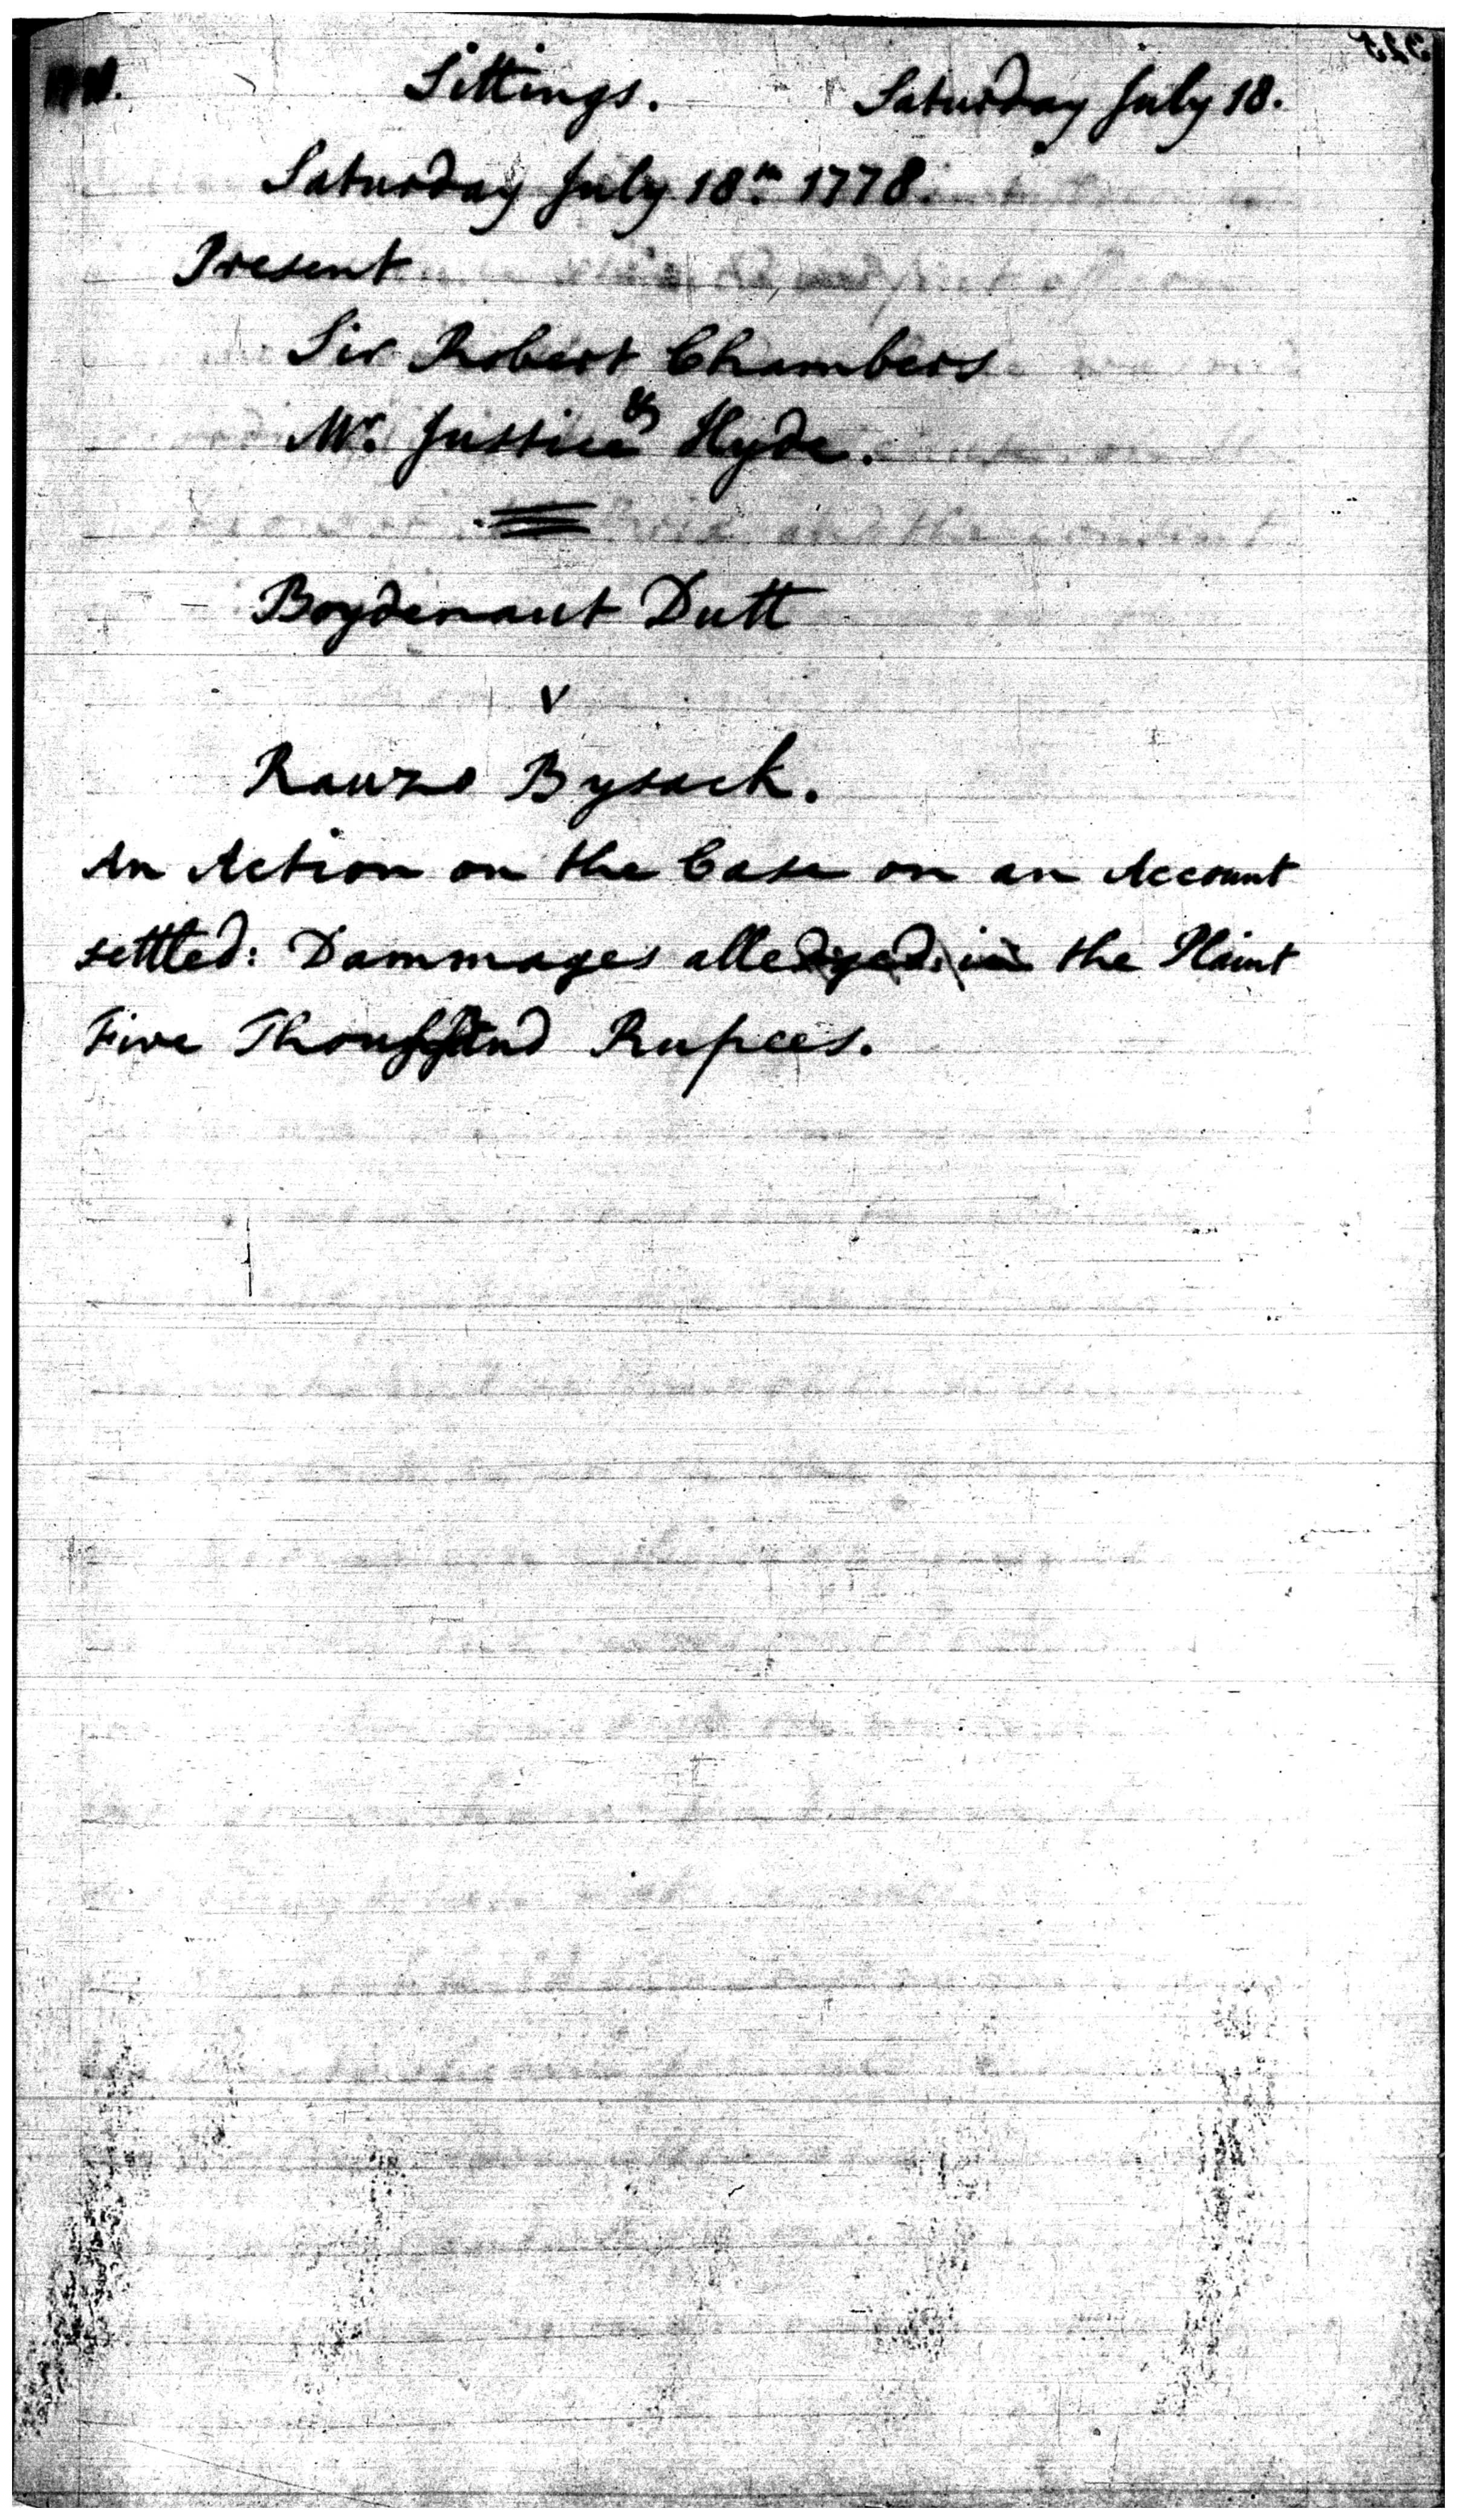 Sittings. Saturday July 18.
Saturday July 18th. 1778.
Present
Sir Robert Chambers
Mr. Justice Hyde.
Boydenaut Dutt
v
Bysack.
An Action on the Case on an Account
settled: Dammages alledged in the Plaint
Five Thoussand Rupees.